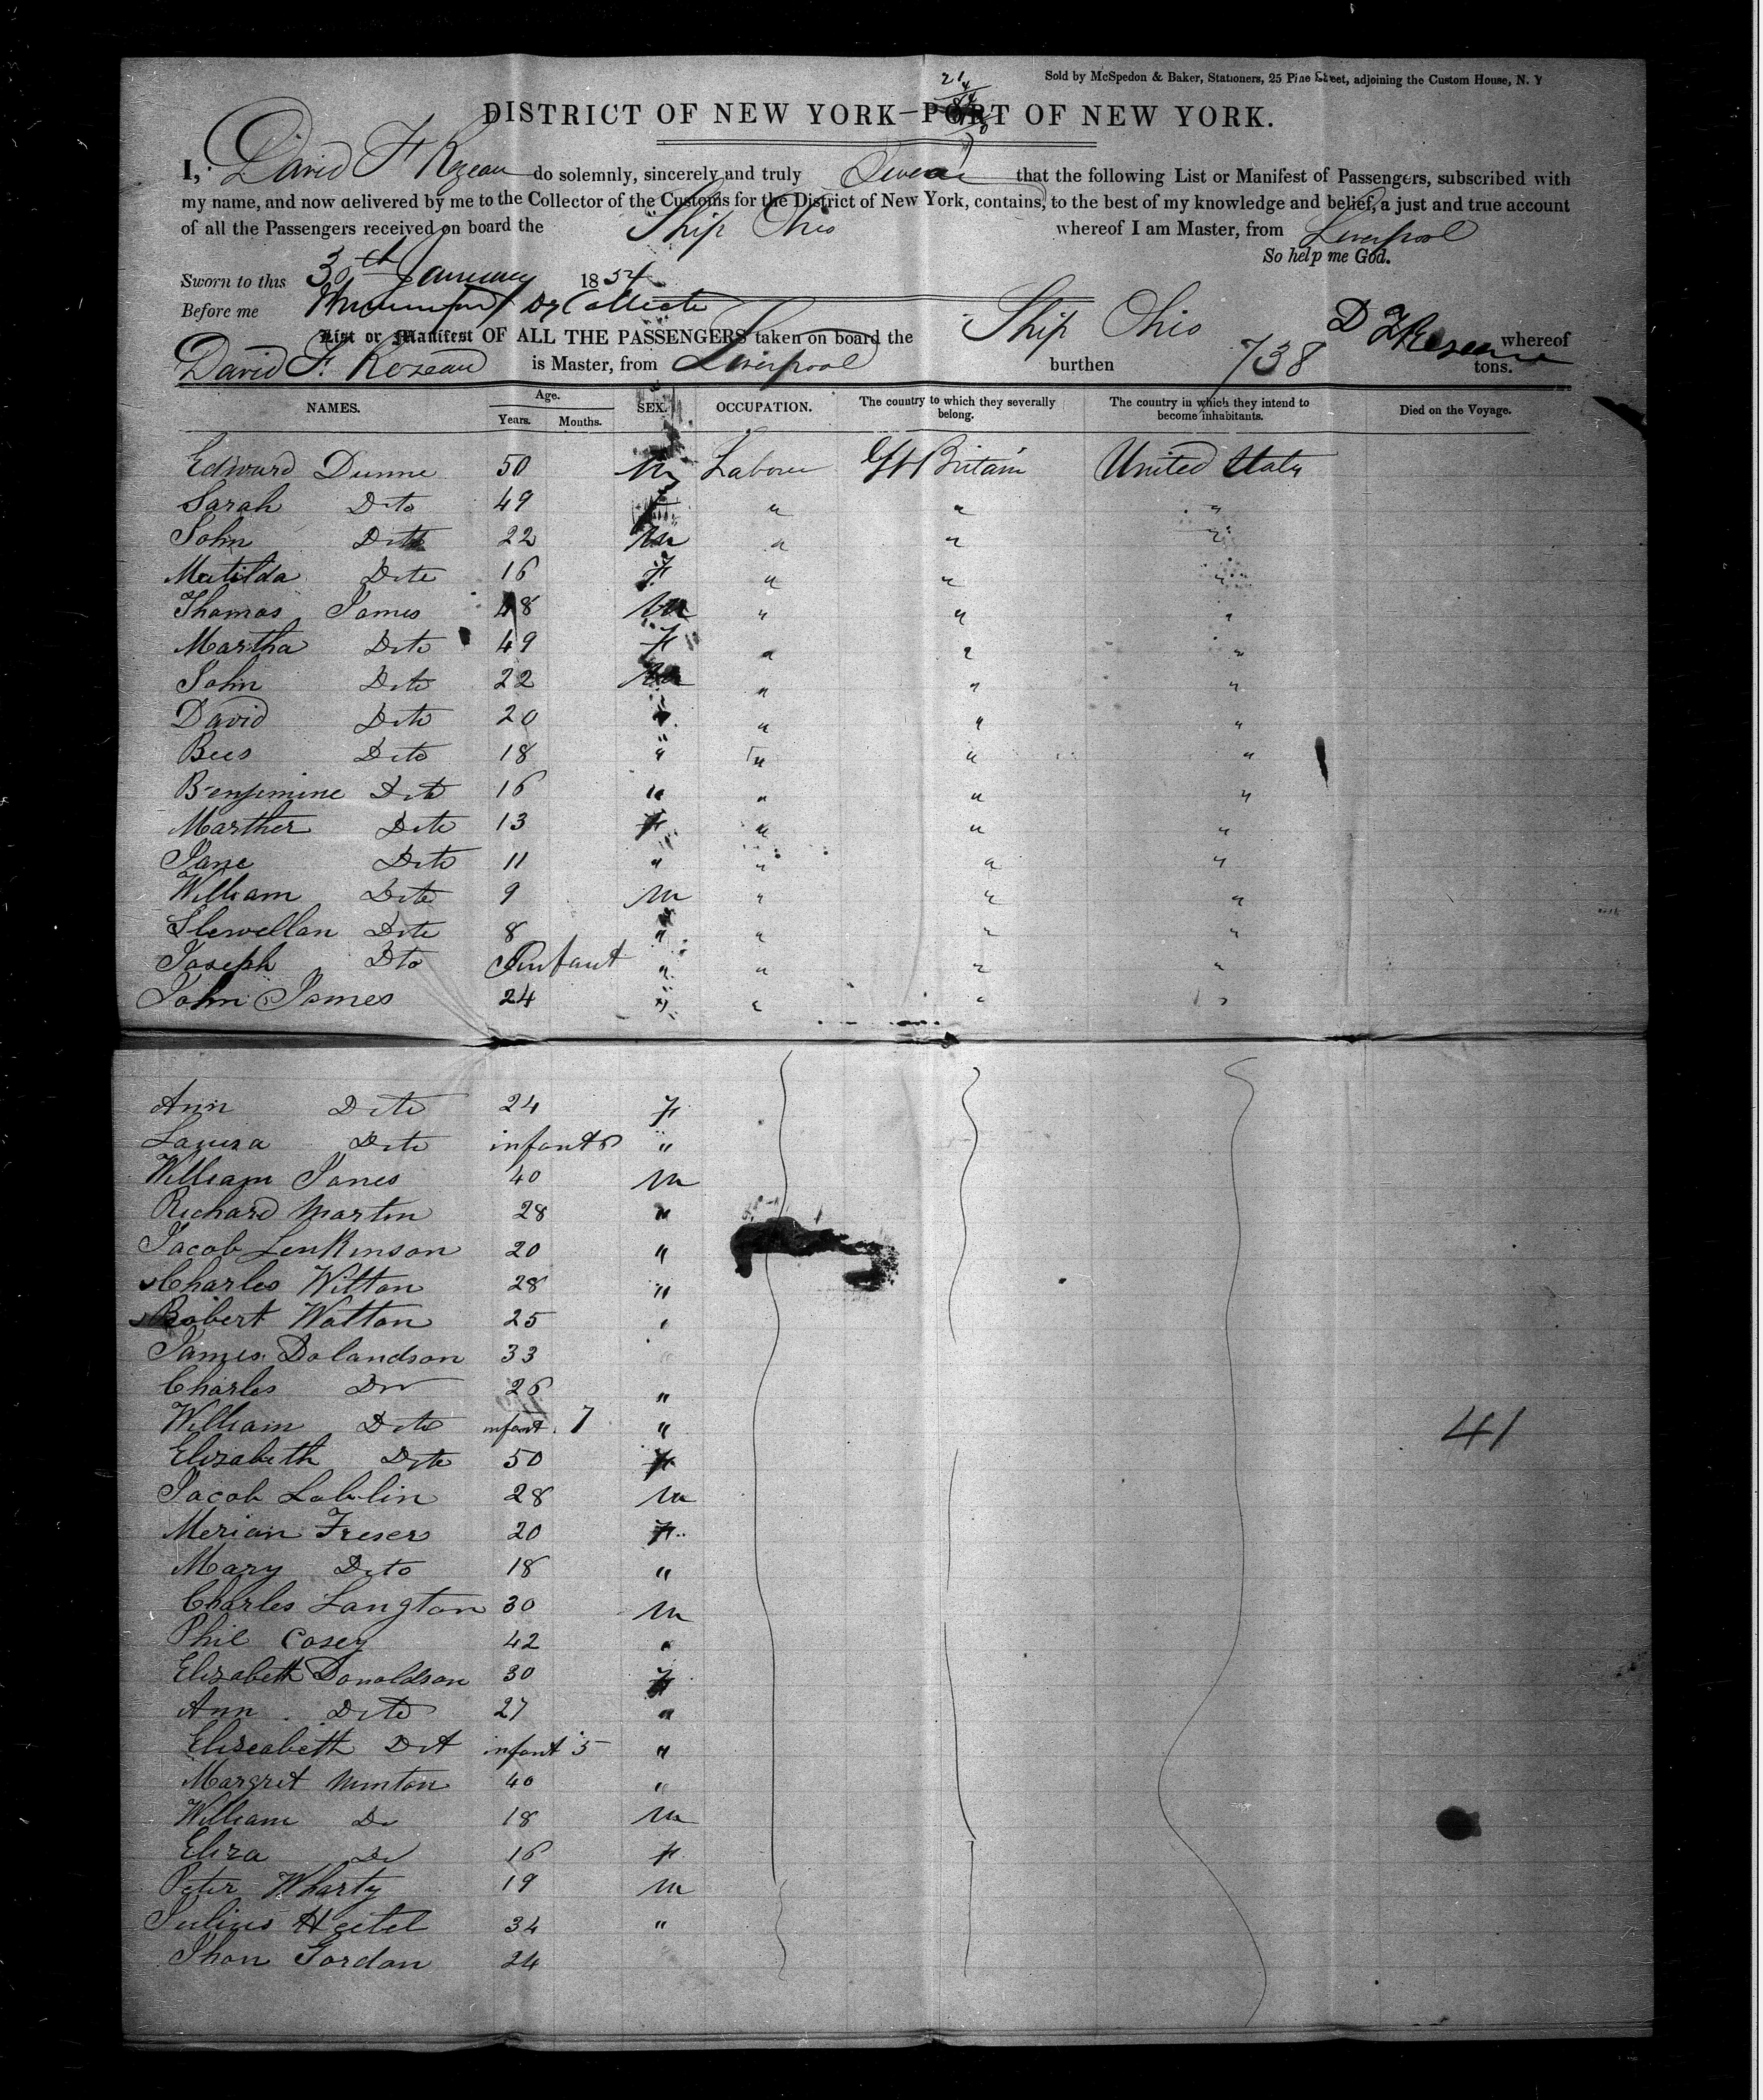 Sold by McSpedon & Baker, Stationers, 25 Pine Street, adjoining the Custom House, N. Y
DISTRICT OF NEW YORK—PORT OF NEW YORK.
I, David F. Rozeau do solemnly, sincerely and truly Swear that the following List or Manifest of Passengers, subscribed with
my name, and now delivered by me to the Collector of the Customs for the District of New York, contains, to the best of my knowledge and belief, a just and true account
of all the Passengers received on board the Ship Ohio whereof I am Master, from Liverpool
So help me God.
Sworn to this 30th January 1854
Before me Dy Collecte
D F Rozeau
List or Manifest OF ALL THE PASSENGERS taken on board the Ship Ohio whereof
David F. Rozeau is Master, from Liverpool burthen 738 tons.
NAMES. Age. Years. Months. SEX. OCCUPATION. The country to which they severally belong. The country in which they intend to become inhabitants. Died on the Voyage.
Edward Dunne 50 M Labourer Gt Britain United States
Sarah Dito 49 F " " "
John Dito 22 M " " "
Matilda Dito 16 F " " "
Thomas James 48 M " " "
Martha Dito 49 F " " "
John Dito 22 M " " "
David Dito 20 " " " "
Bees Dito 18 " " " "
Benjimine Dito 16 " " " "
Marther Dito 13 F " " "
Jane Dito 11 " " " "
William Dito 9 M " " "
Llewellan Dito 8 " " " "
Joseph Dto Infant " " " "
John James 24 " " " "
Ann Dito 24 F
Dito infant "
William Jones 40 M
Richard Martin 28 "
Jacob Lenkinson 20 "
Charles Wilton 28 "
Robert Walton 25 "
James Dolandson 33
Charles Do 26 "
William Dito infant 7 "
41
Elizabeth Dito 50 F
Jacob Lablin 28 M
Merian Freser 20 F
Mary Dito 18 "
Charles Langton 30 M
Phil Casey 42 "
Elizabeth Donaldson 30 F
Ann Dito 27 "
Eliseabeth Dit infant 5 "
Margret Munton 40 "
William Do 18 M
Eliza Do 16 F
Peter Wharty 19 M
Julius Heitel 34 "
Jhon Gordan 24